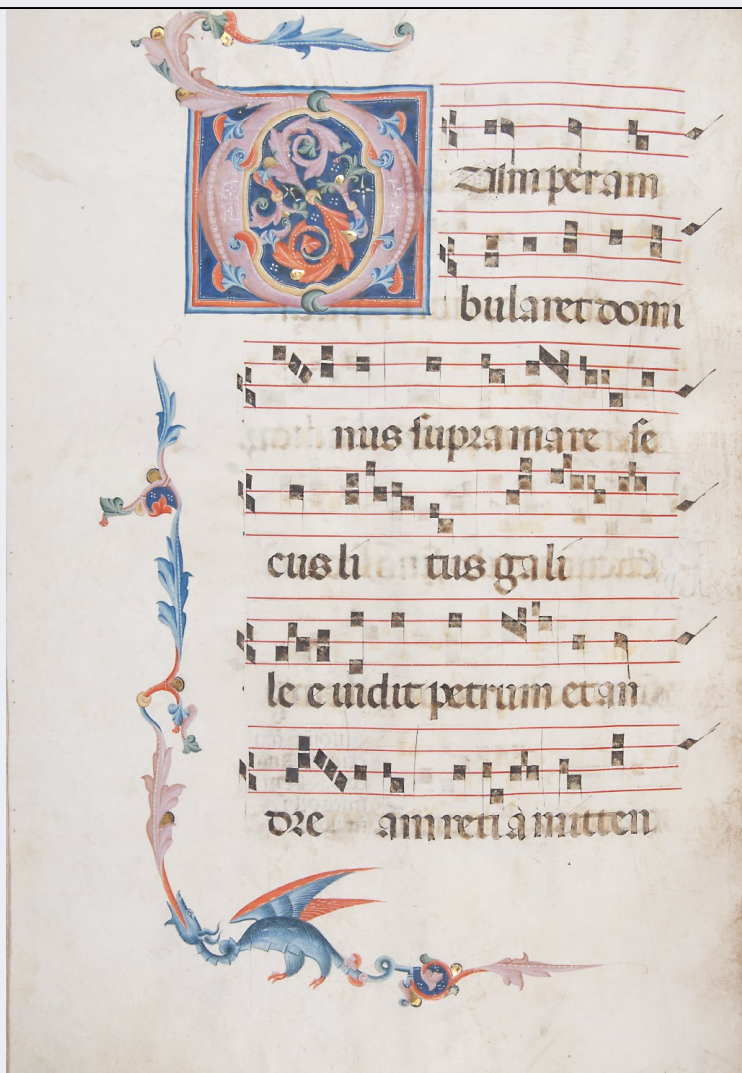 Dum peram
bularet domi
nus supra mare se
cus li tus gali
le e uidit petrum et an
dre am reti a mitten